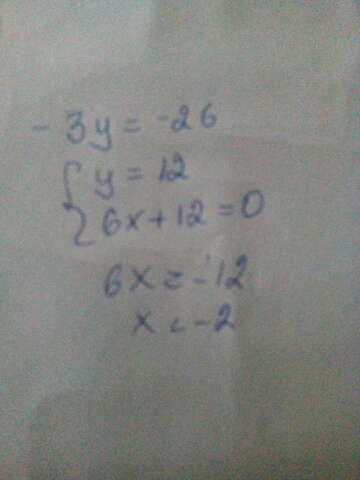 - 3y = -26
{ y = 12
6x + 12 = 0
6x = -12
x = -2